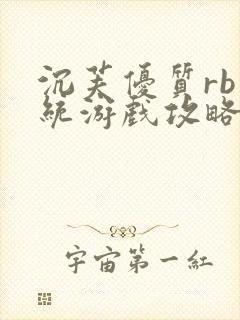 沉芙優質rb
統游戲攻略
宇宙第一紅